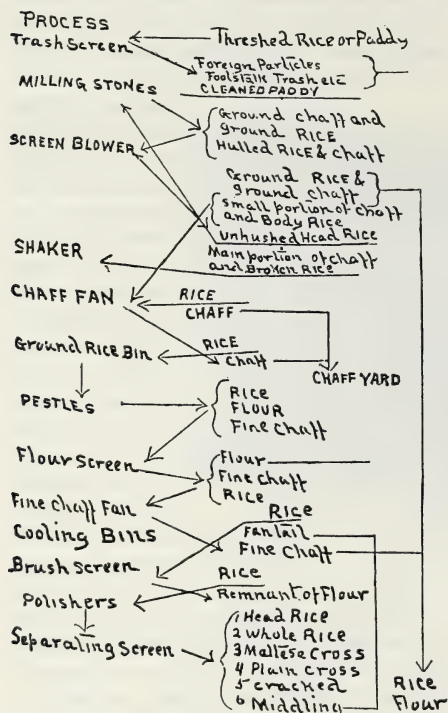 PROCESS
Trash Screen
Threshed Rice or Paddy
Foreign Particles
Footstalk Trash etc
CLEANED PADDY
MILLING STONES
Ground chaff and
ground RICE
Hulled RICE & chaff
SCREEN BLOWER
Ground RICE &
ground chaff
Small portion of chaff
and Body Rice
Unhushed Head Rice
Main portion of chaff
and Broken Rice
SHAKER
CHAFF FAN
RICE
CHAFF
Ground Rice Bin
RICE
Chaff
CHAFF YARD
PESTLES
RICE
FLOUR
Fine Chaff
Flour Screen
Flour
Fine Chaff
RICE
Fine Chaff Fan
Rice
Fantail
Fine Chaff
Cooling Bins
Brush Screen
Rice
Remnant of Flour
Polishers
Separating Screen
1 Head Rice
2 Whole Rice
3 Maltese Cross
4 Plain Cross
5 Cracked
6 Middling
Rice
Flour